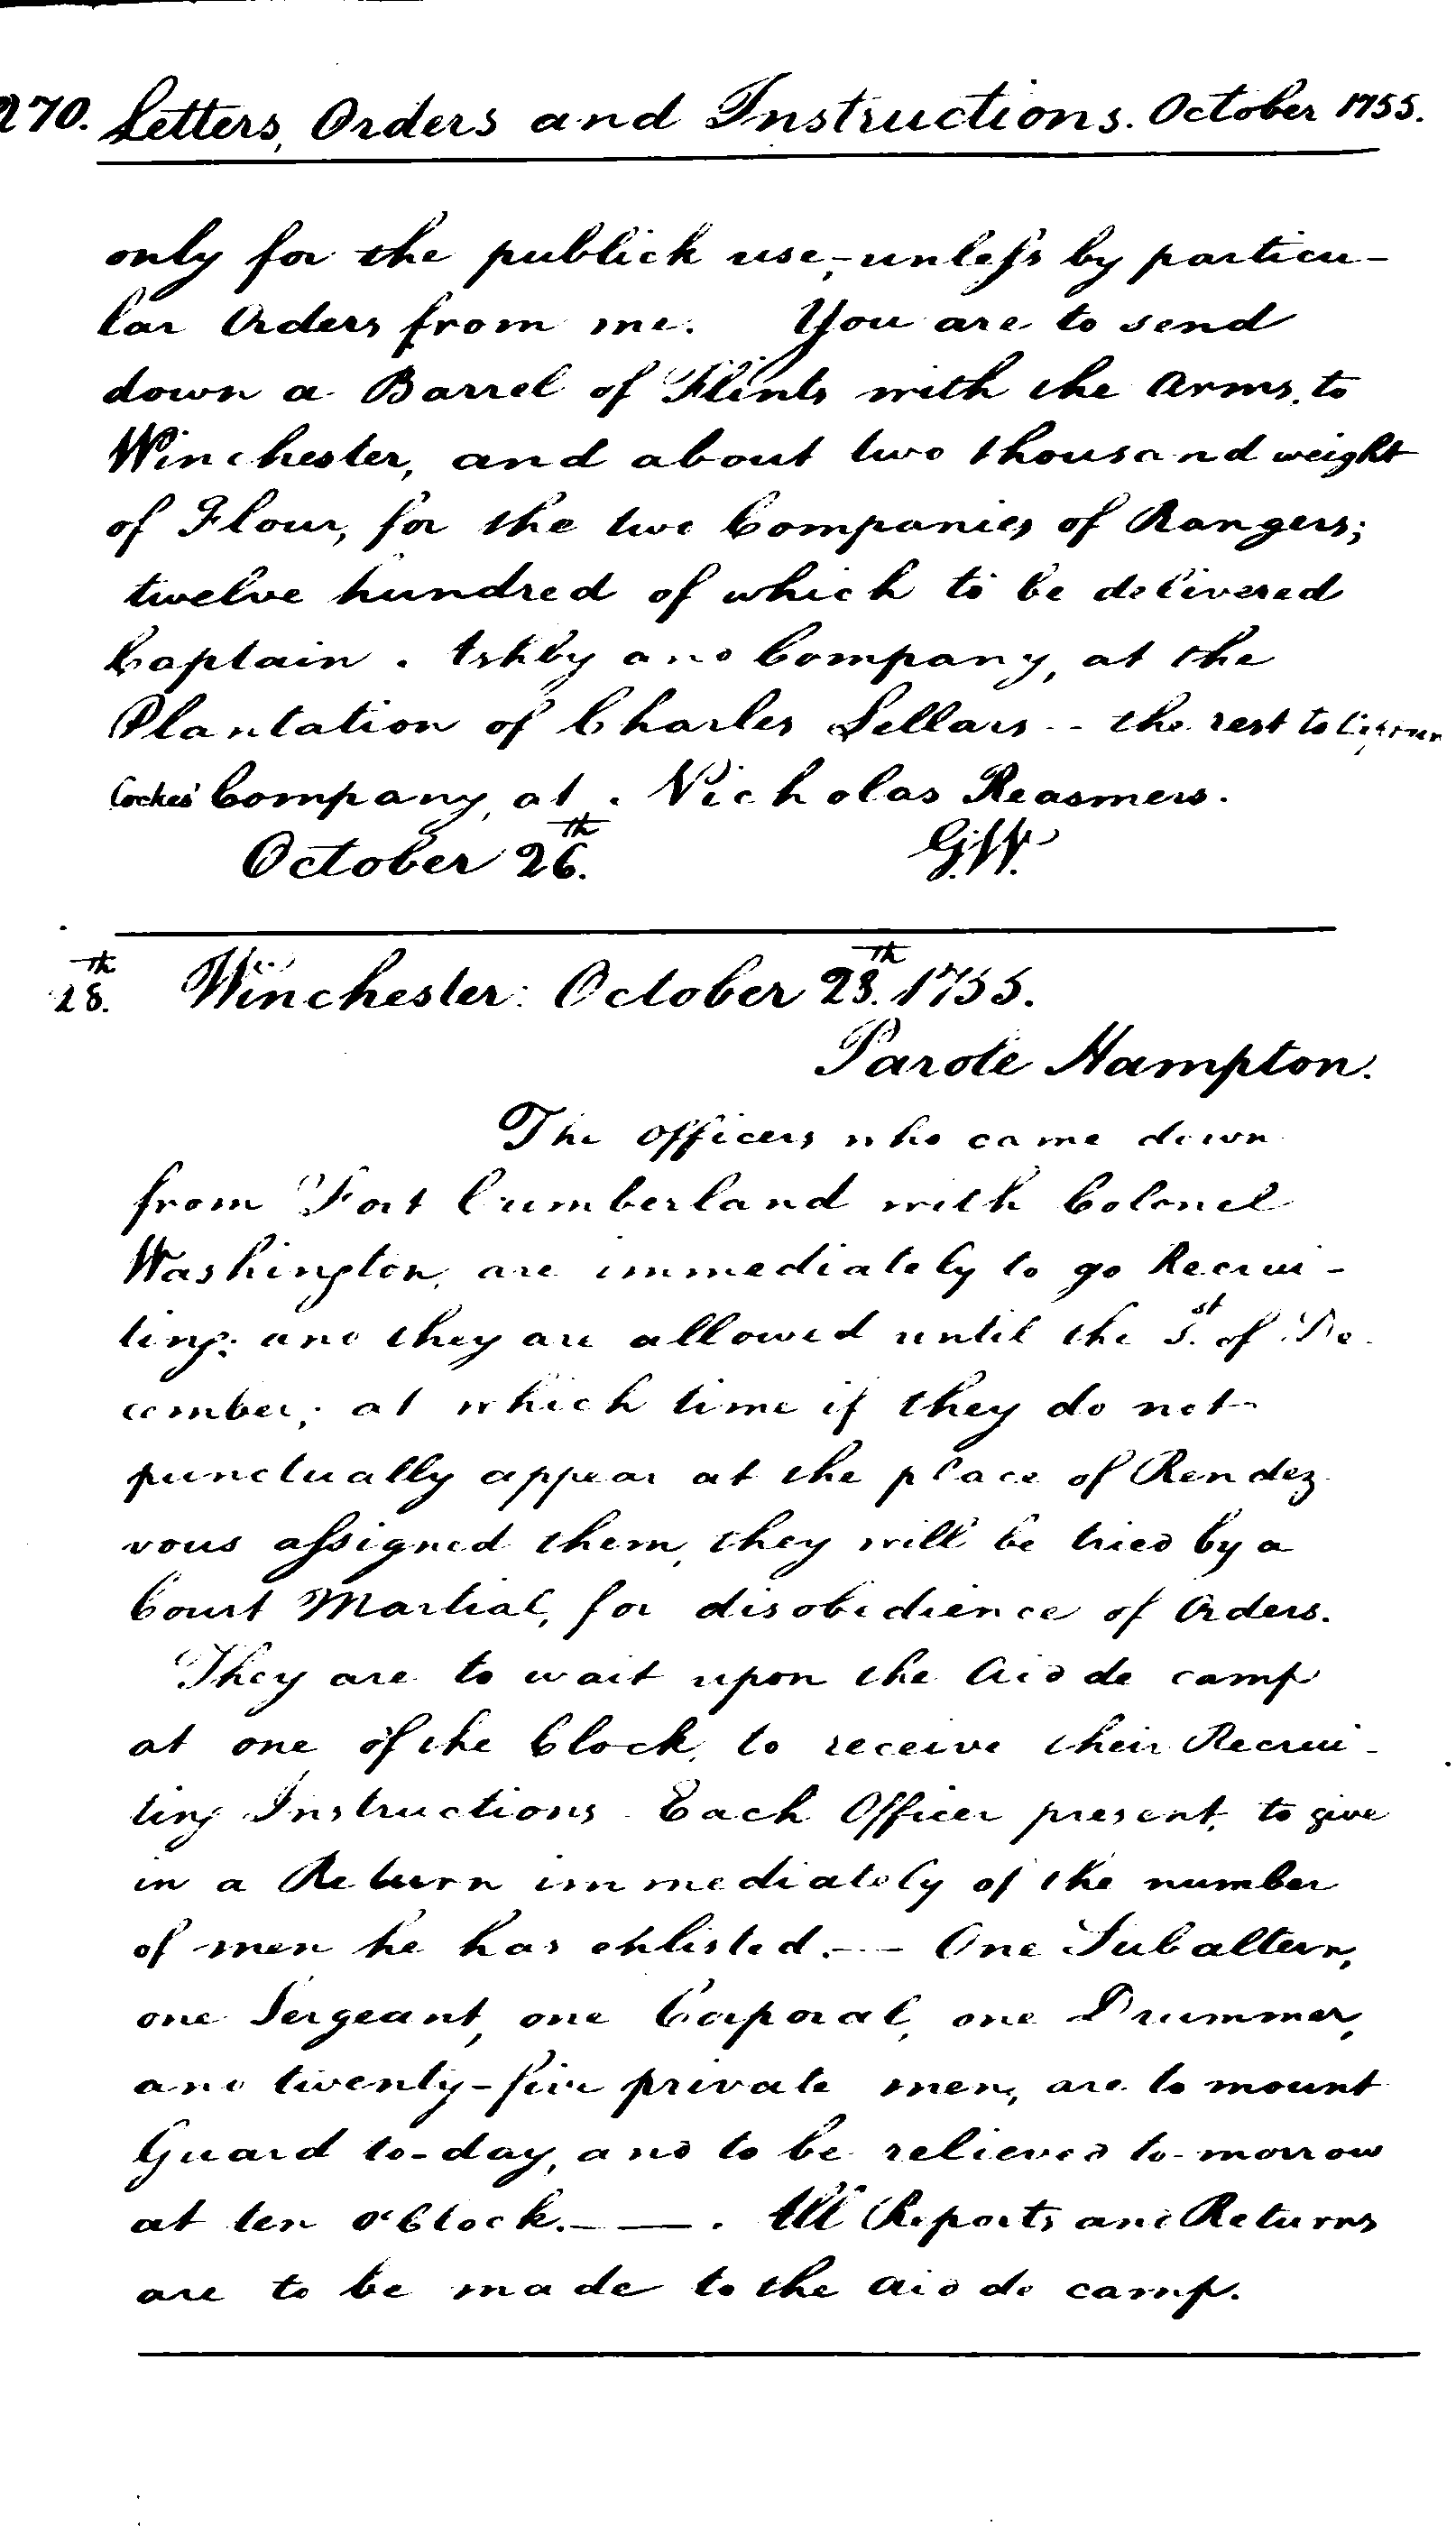 270. Letters, Orders and Instructions. October 1755.
only for the publick use,-unless by particu-
lar Orders from me. You are to send
down a Barrel of Flints with the Arms, to
Winchester, and about two thousand weight
of Flour, for the two Companies of Rangers;
twelve hundred of which to be delivered
Captain . Ashby and Company, at the
Plantation of Charles Sellars -- the rest to
Cockes' Company, at . Nicholas Reasmers.
October 26.th G.W.
28.th Winchester: October 28.th 1755.
Parole Hampton.
The Officers who came down
from Fort Cumberland with Colonel
Washington, are immediately to go Recrui-
ting; and they are allowed until the 1.st of De-
cember; at which time if they do not
punctually appear at the place of Rendez
vous assigned them, they will be tried by a
Court Martial, for disobedience of Orders.
They are to wait upon the Aid de camp
at one of the Clock, to receive their Recrui-
ting Instructions. Each Officer present, to give
in a Return immediately of the number
of men he has enlisted.-- One Subaltern,
one Sergeant, one Corporal, one Drummer,
and twenty-five private men, are to mount
Guard to-day, and to be relieved to-morrow
at ten o'Clock.-- . All Reports and Returns
are to be made to the aid de camp.